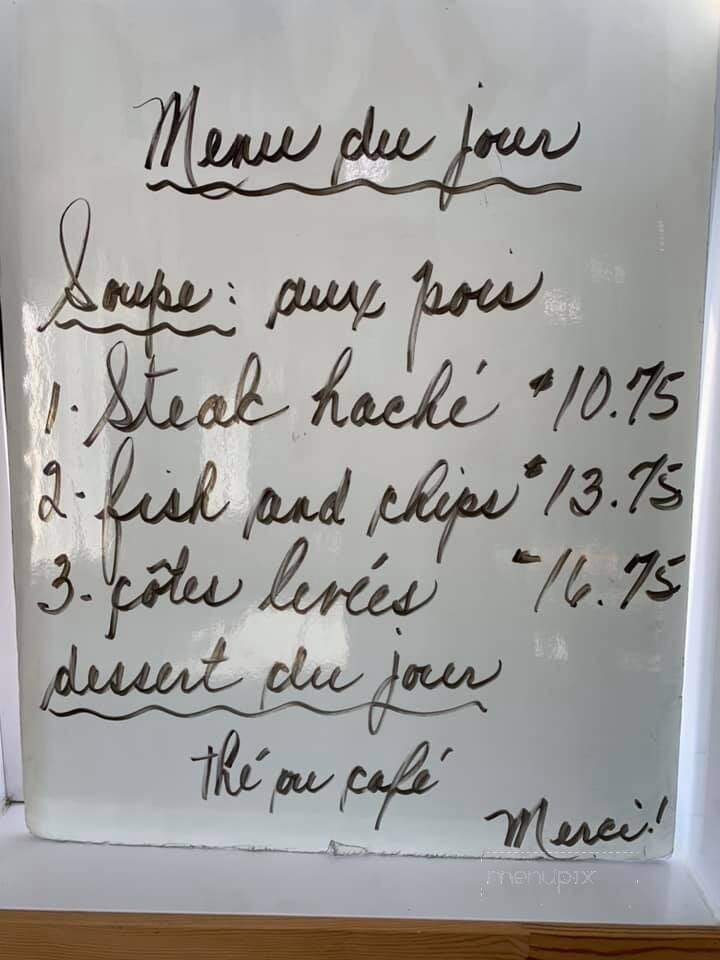 Menu du jour
Soupe: aux pois
1. Steak haché $10.75
2- fish and chips $13.75
3- côtes levées $16.75
dessert du jour
thé ou café
Merci!
menupix